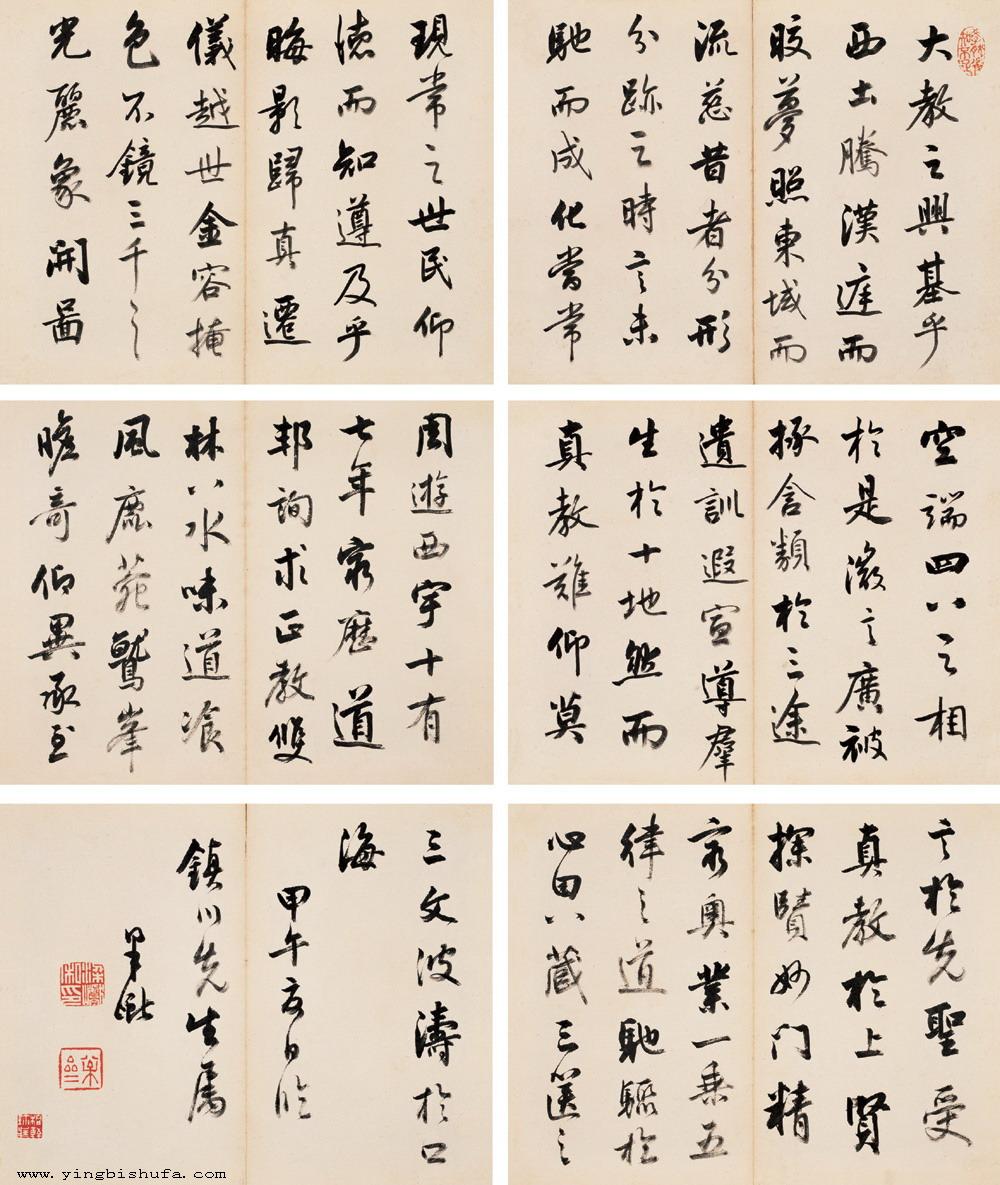 大教之興基乎
西土騰漢庭而
皎夢照東域而
流慈昔者分形
分跡之時言未
馳而成化當常
現常之世民仰
德而知遵及乎
晦影歸真遷
儀越世金容掩
色不鏡三千之
光麗象開圖
空端四八之相
於是微言廣被
拯含類於三途
遺訓遐宣導羣
生於十地然而
真教難仰莫
周遊西宇十有
七年窮歷道
邦詢求正教雙
林八水味道飡
風鹿菀鷲峯
瞻奇仰異承至
言於先聖受
真教於上賢
探賾妙門精
窮奧業一乘五
律之道馳驟於
心田八藏三篋之
三文波濤於口
海
甲午夏日臨
鎮川先生屬
梁巘
www.yingbishufa.com